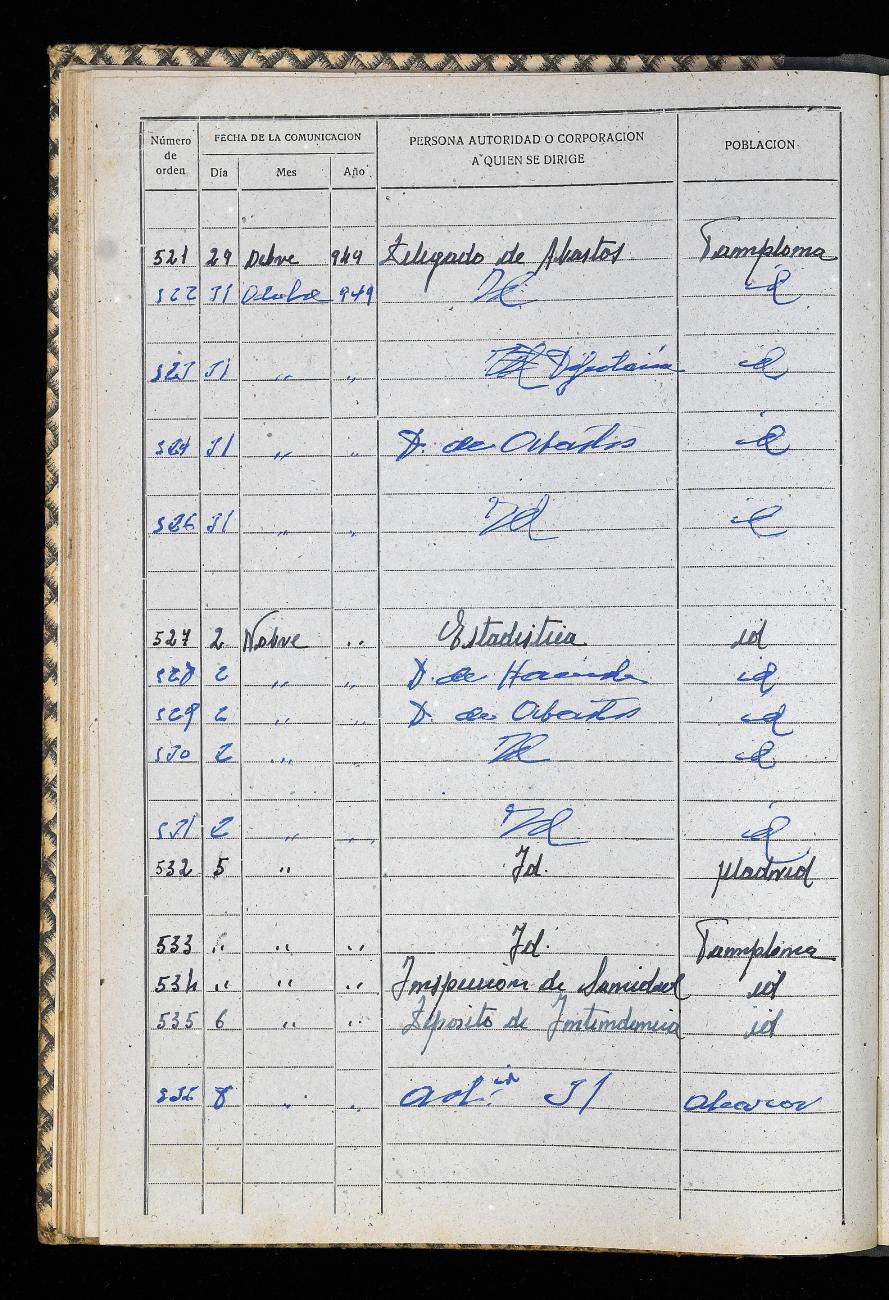 Número de orden FECHA DE LA COMUNICACION PERSONA AUTORIDAD O CORPORACION A QUIEN SE DIRIGE POBLACION
Día Mes Año
521 29 Octbre 949 Delegado de Abastos Pamplona
522 31 Octubre 949 Id id
523 31 " " Diputación id
524 31 " " D. de Abastos id
526 31 " " Id id
527 2 Nobre " Estadistica id
528 2 " " D. de Hacienda id
529 2 " " D. de Abastos id
530 2 " " Id id
531 2 " " Id id
532 5 " Id. Madrid
533 " " " Id. Pamplona
534 " " " Inspección de Sanidad id
535 6 " " Deposito de Intendencia id
536 8 " " 31